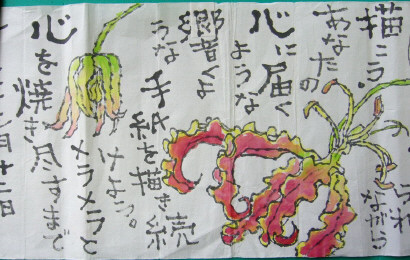 ながら
描こう。
あなたの
心に届く
ような
響くよ
うな手氏絵を描き続
けよう。
メラメラと
心を焼き尽すまで
月十二日